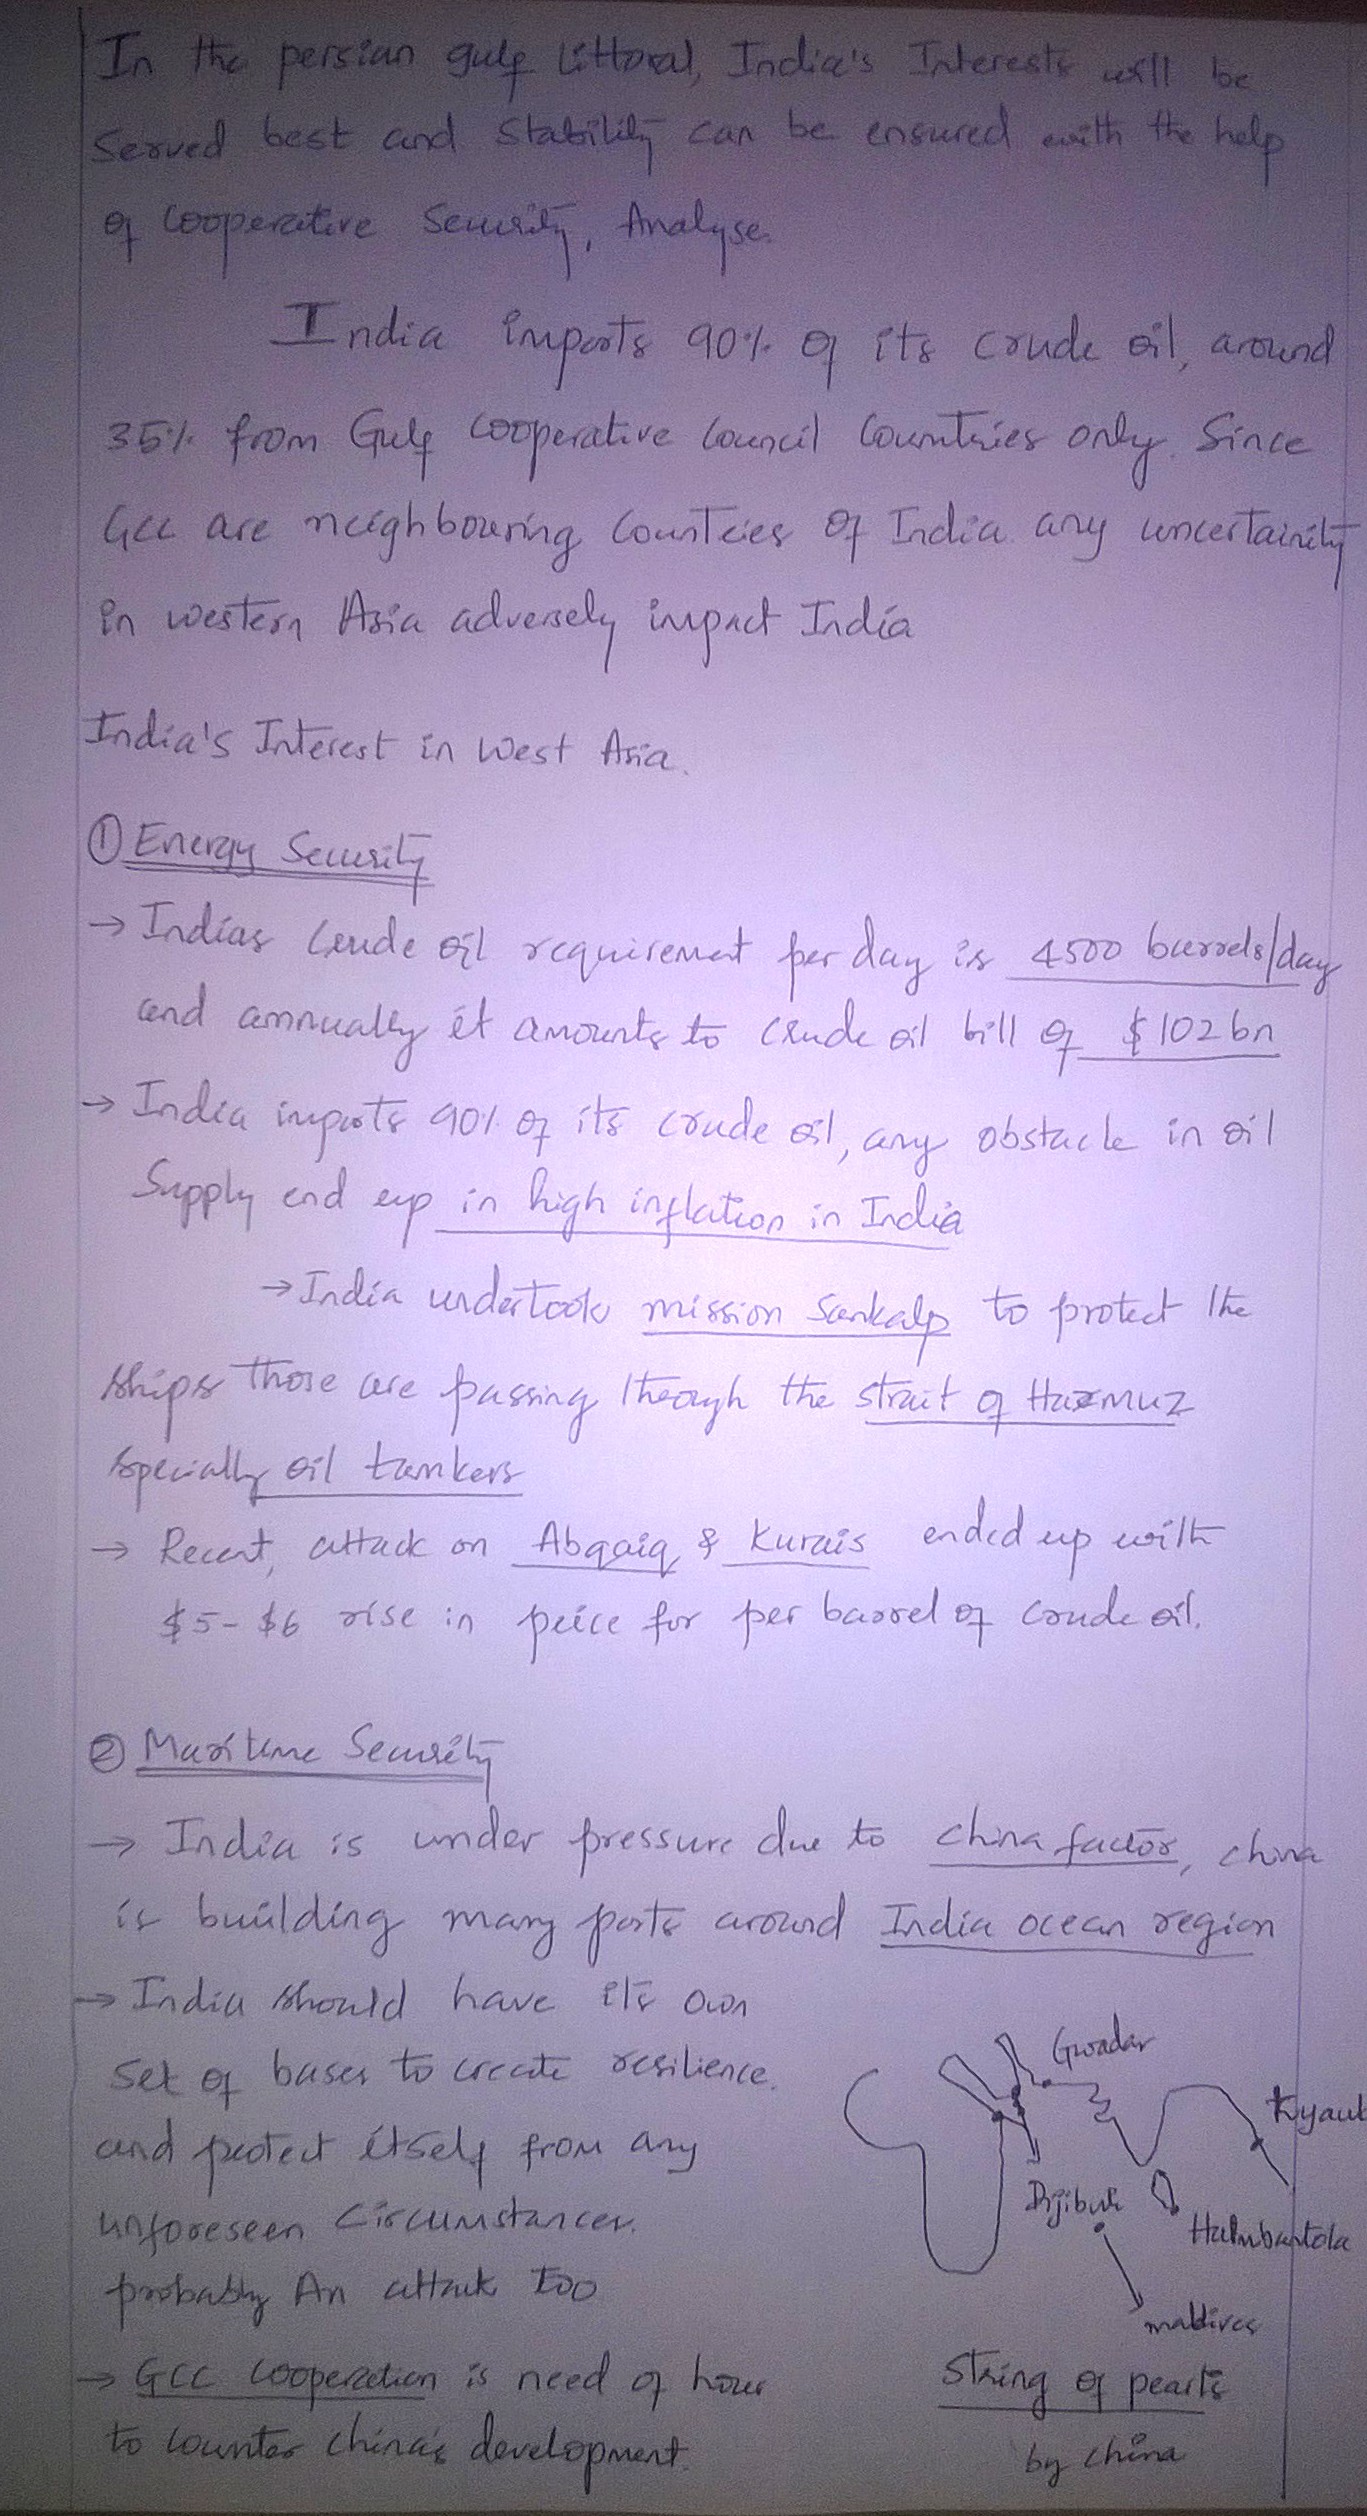 In the persian gulf littoral, India's Interests will be
served best and stability can be ensured with the help
of cooperative security, Analyse.
India imports 90% of its crude oil, around
35% from Gulf cooperative council countries only. Since
GCC are neighbouring countries of India any uncertainity
in western Asia adversely impact India
India's Interest in West Asia.
① Energy Security
→ Indias crude oil requirement per day is 4500 barrels/day
and annually it amounts to crude oil bill of $102bn
→ India imports 90% of its crude oil, any obstacle in oil
supply end up in high inflation in India
→ India undertook mission Sankalp to protect the
ships those are passing through the strait of Harmuz
specially oil tankers
→ Recent, attack on Abqaiq & Kurais ended up with
$5-$6 rise in price for per barrel of crude oil.
② Maritime Security
→ India is under pressure due to china factor, china
is building many ports around India ocean region
→ India should have its own
set of bases to create resilience.
and protect itself from any
unforeseen circumstances.
probably An attack too
→ GCC cooperation is need of hour
to counter china's development.
Gwadar
Kyauk
Djibuti
Hambantola
maldives
String of pearls
by china